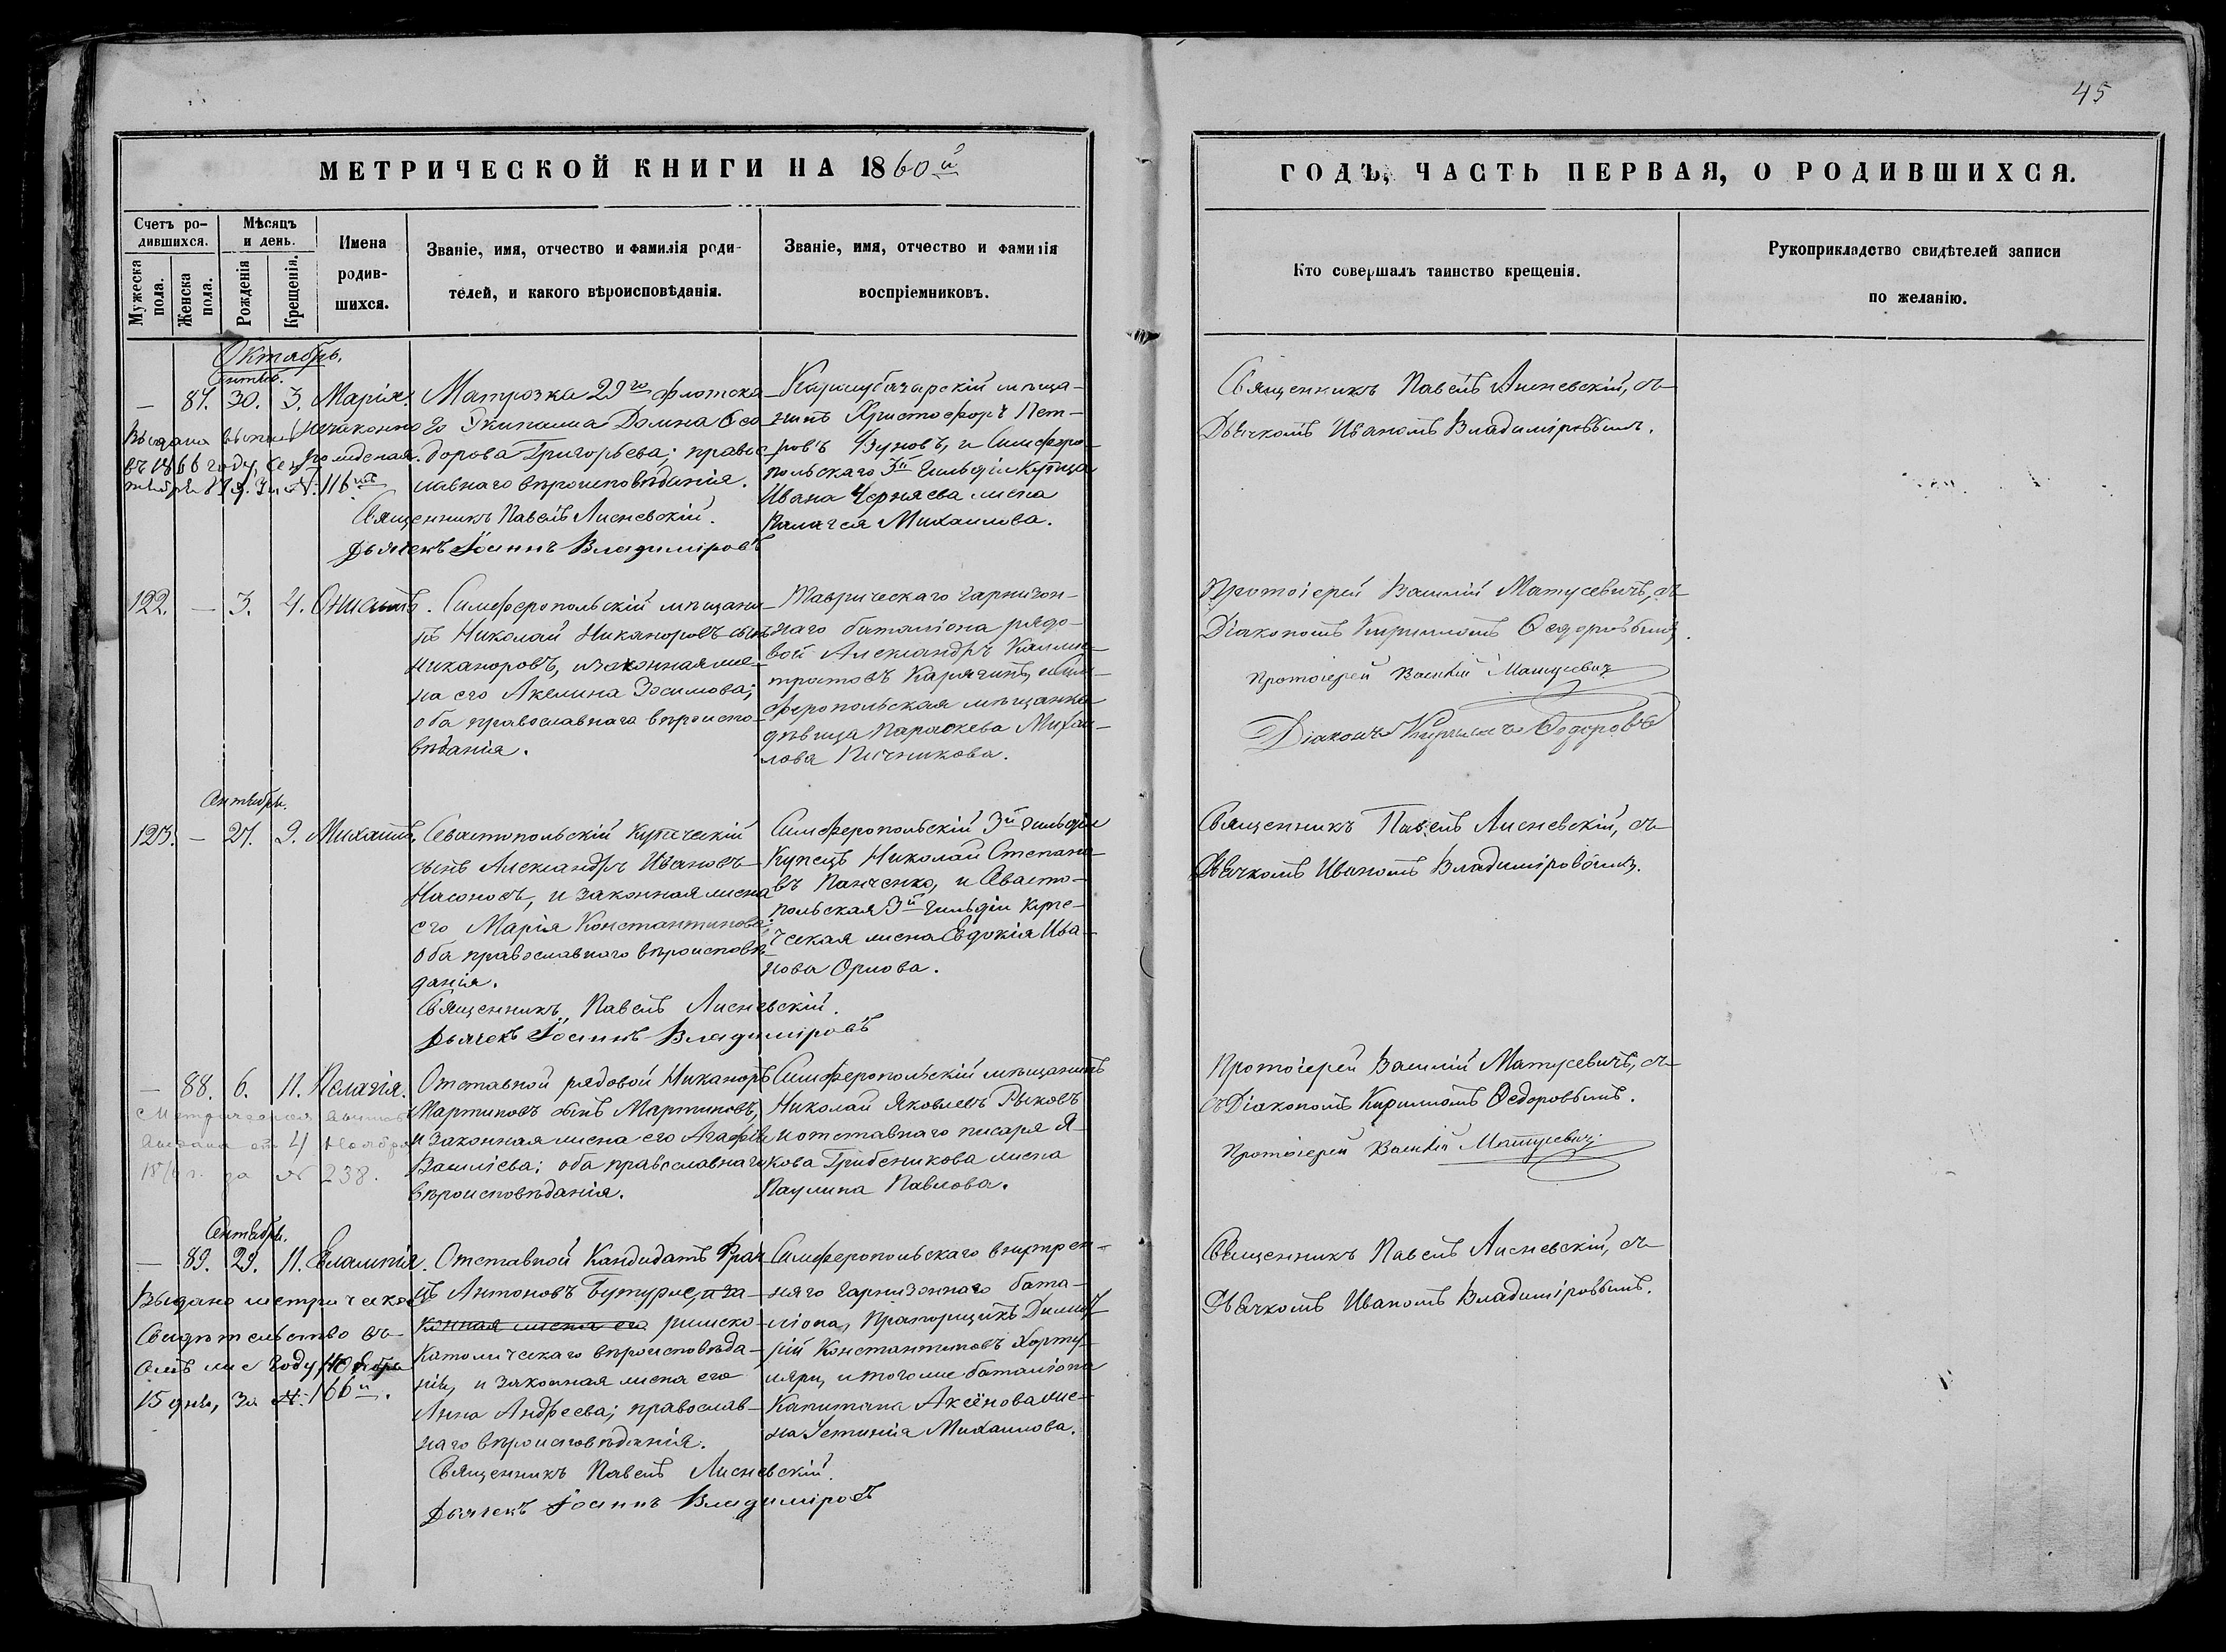 45
МЕТРИЧЕСКОЙ КНИГИ НА 1860й
ГОДЪ, ЧАСТЬ ПЕРВАЯ, О РОДИВШИХСЯ.
Счетъ ро-
дившихся.
Мужеска пола.
Женска пола.
Мѣсяцъ
и день.
Рожденія
Крещенія.
Имена
родив-
шихся.
Званіе, имя, отчество и фамилія роди-
телей, и какого вѣроисповѣданія.
Званіе, имя, отчество и фамилія
воспріемниковъ.
Кто совершалъ таинство крещенія.
Рукоприкладство свидѣтелей записи
по желанію.
Октябрь.
— 87. 30. 3. Марія.
незаконно
рожденная.
въ 1866 году, Сен
тября 89. За №: 116мъ
Матрозка 29го флотска-
го Экипажа Домна Ѳео
дорова Григорьева; правос
лавнаго вѣроисповѣданія.
Священникъ Павелъ Лисневскій.
Дьячекъ Іоаннъ Владиміровъ
Карасубазарскій мѣща-
нинъ Христофоръ Пет-
ровъ Узуновъ, и Симферо-
польскаго 3й гильдіи Купца
Ивана Черняева жена
Палагея Михаилова.
Священникъ Павелъ Лисневскій, съ
Дьячкомъ Иваномъ Владиміровымъ.
122. — 3. 4.
Симферопольскій мѣщани
нъ Николай Никаноровъ сынъ
Никаноровъ, и законная же-
на его Акелина Зосимова;
оба православнаго вѣроиспо-
вѣданія.
Таврическаго гарнизон-
наго баталіона рядо-
вой Александръ Каллис-
тратовъ Карягинъ, и Сим-
феропольская мѣщанка
дѣвица Параскева Михаи-
лова Пичникова.
Протоіерей Василій Матусевичъ, съ
Діакономъ Кирилломъ Ѳедоровымъ.
Протоіерей Василій Матусевичъ
Діаконъ Кириллъ Ѳедоровъ
Сентябрь.
123. — 27. 9. Михаилъ.
Севастопольскій Купеческій
сынъ Александръ Ивановъ
Насоновъ, и законная жена
его Марія Константинова;
оба православнаго вѣроисповѣ-
данія.
Священникъ Павелъ Лисневскій.
Дьячекъ Іоаннъ Владиміровъ
Симферопольскій 3й гильдіи
Купецъ Николай Степано-
въ Панченко, и Севасто-
польская 3й гильдіи Купе-
ческая жена Евдокія Ива-
нова Орлова.
Священникъ Павелъ Лисневскій, съ
Дьячкомъ Иваномъ Владиміровымъ.
— 88. 6. 11. Пелагія.
Метрическая выпись
выдана отъ 4 Ноября
за № 238.
Отставной рядовой Никаноръ
Мартиновъ сынъ Мартиновъ,
и законная жена его Агафія
Василіева; оба православнаго
вѣроисповѣданія.
Симферопольскій мѣщанинъ
Николай Яковлевъ Рыковъ
и отставнаго писаря Я-
кова Грибеникова жена
Паулина Павлова.
Протоіерей Василій Матусевичъ, съ
Діакономъ Кирилломъ Ѳедоровымъ.
Протоіерей Василій Матусевичъ
Сентябрь.
— 89. 29. 11. Евлампія.
Выдано метрическое
Свидѣтельство въ
семъ же году, Ноября
15 дня, за №: 166й.
Отставной Кандидатъ Фран
цъ Антоновъ Бутурле, и за-
конная жена его римско-
Католическаго вѣроисповѣда-
нія, и законная жена его
Анна Андреева; православ-
наго вѣроисповѣданія.
Священникъ Павелъ Лисневскій.
Дьячекъ Іоаннъ Владиміровъ
Симферопольскаго внутрен-
няго гарнизоннаго бата-
ліона, Прапорщикъ Димит
рій Константиновъ
и того же баталіона
Капитана Аксёнова же-
на Устинія Михаилова.
Священникъ Павелъ Лисневскій, съ
Дьячкомъ Иваномъ Владиміровымъ.